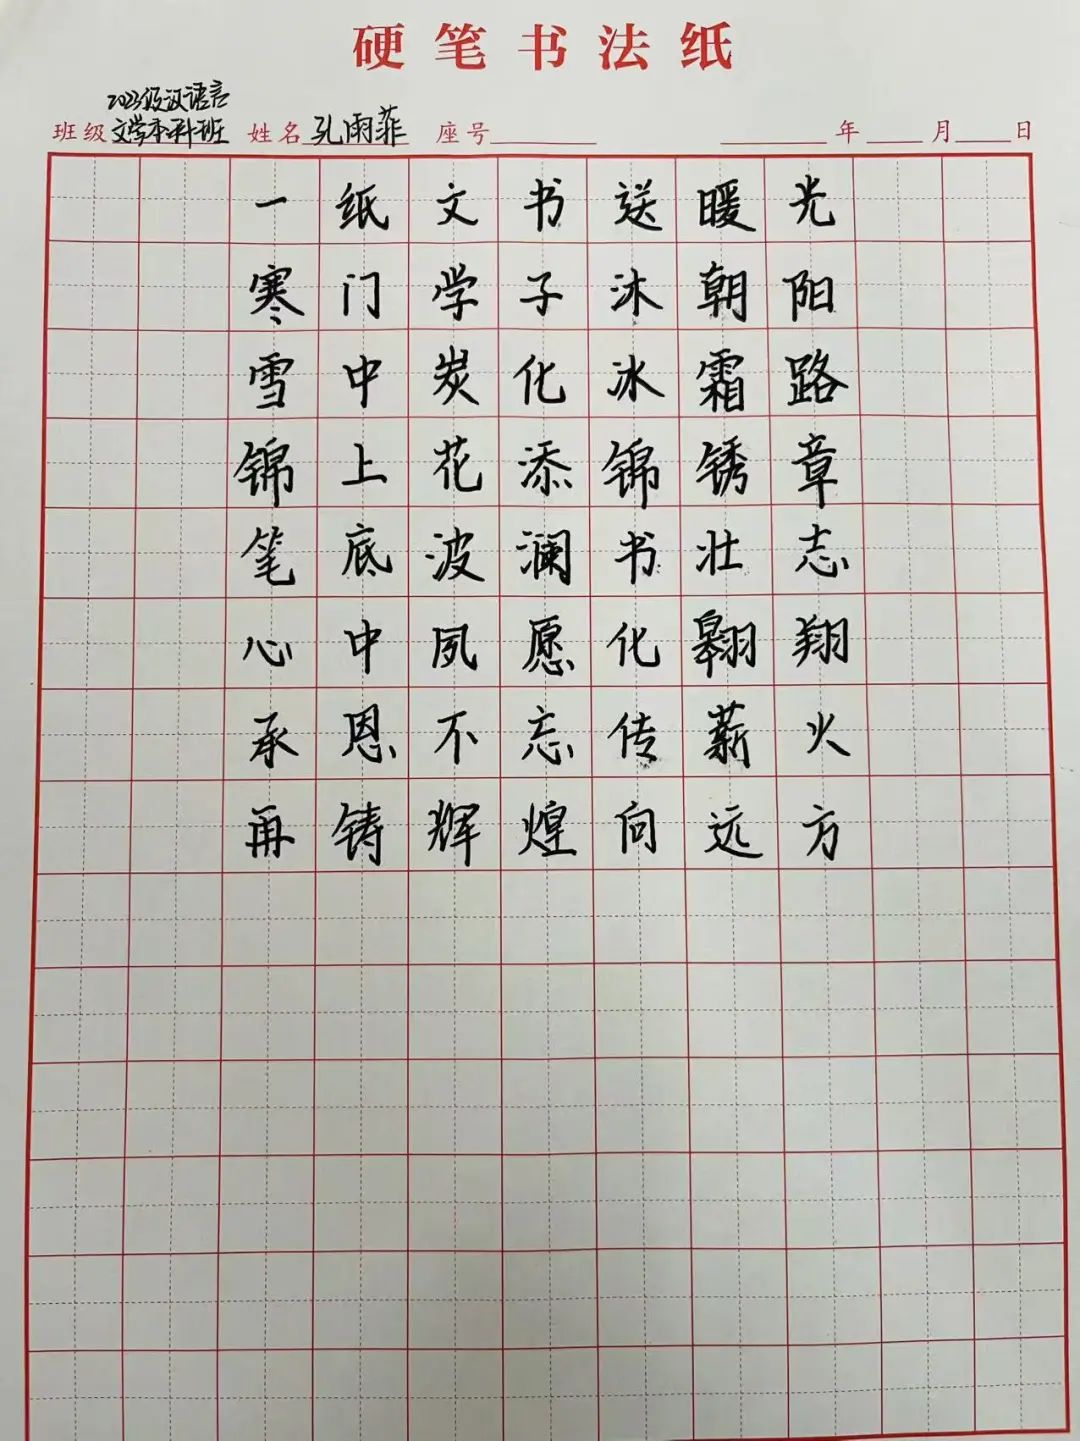 硬笔书法纸
2023级汉语言
班级 文学本科班 姓名 孔雨菲 座号 年 月 日
一纸文书送暖光
寒门学子沐朝阳
雪中炭化冰霜路
锦上花添锦锈章
笔底波澜书壮志
心中夙愿化翱翔
承恩不忘传薪火
再铸辉煌向远方